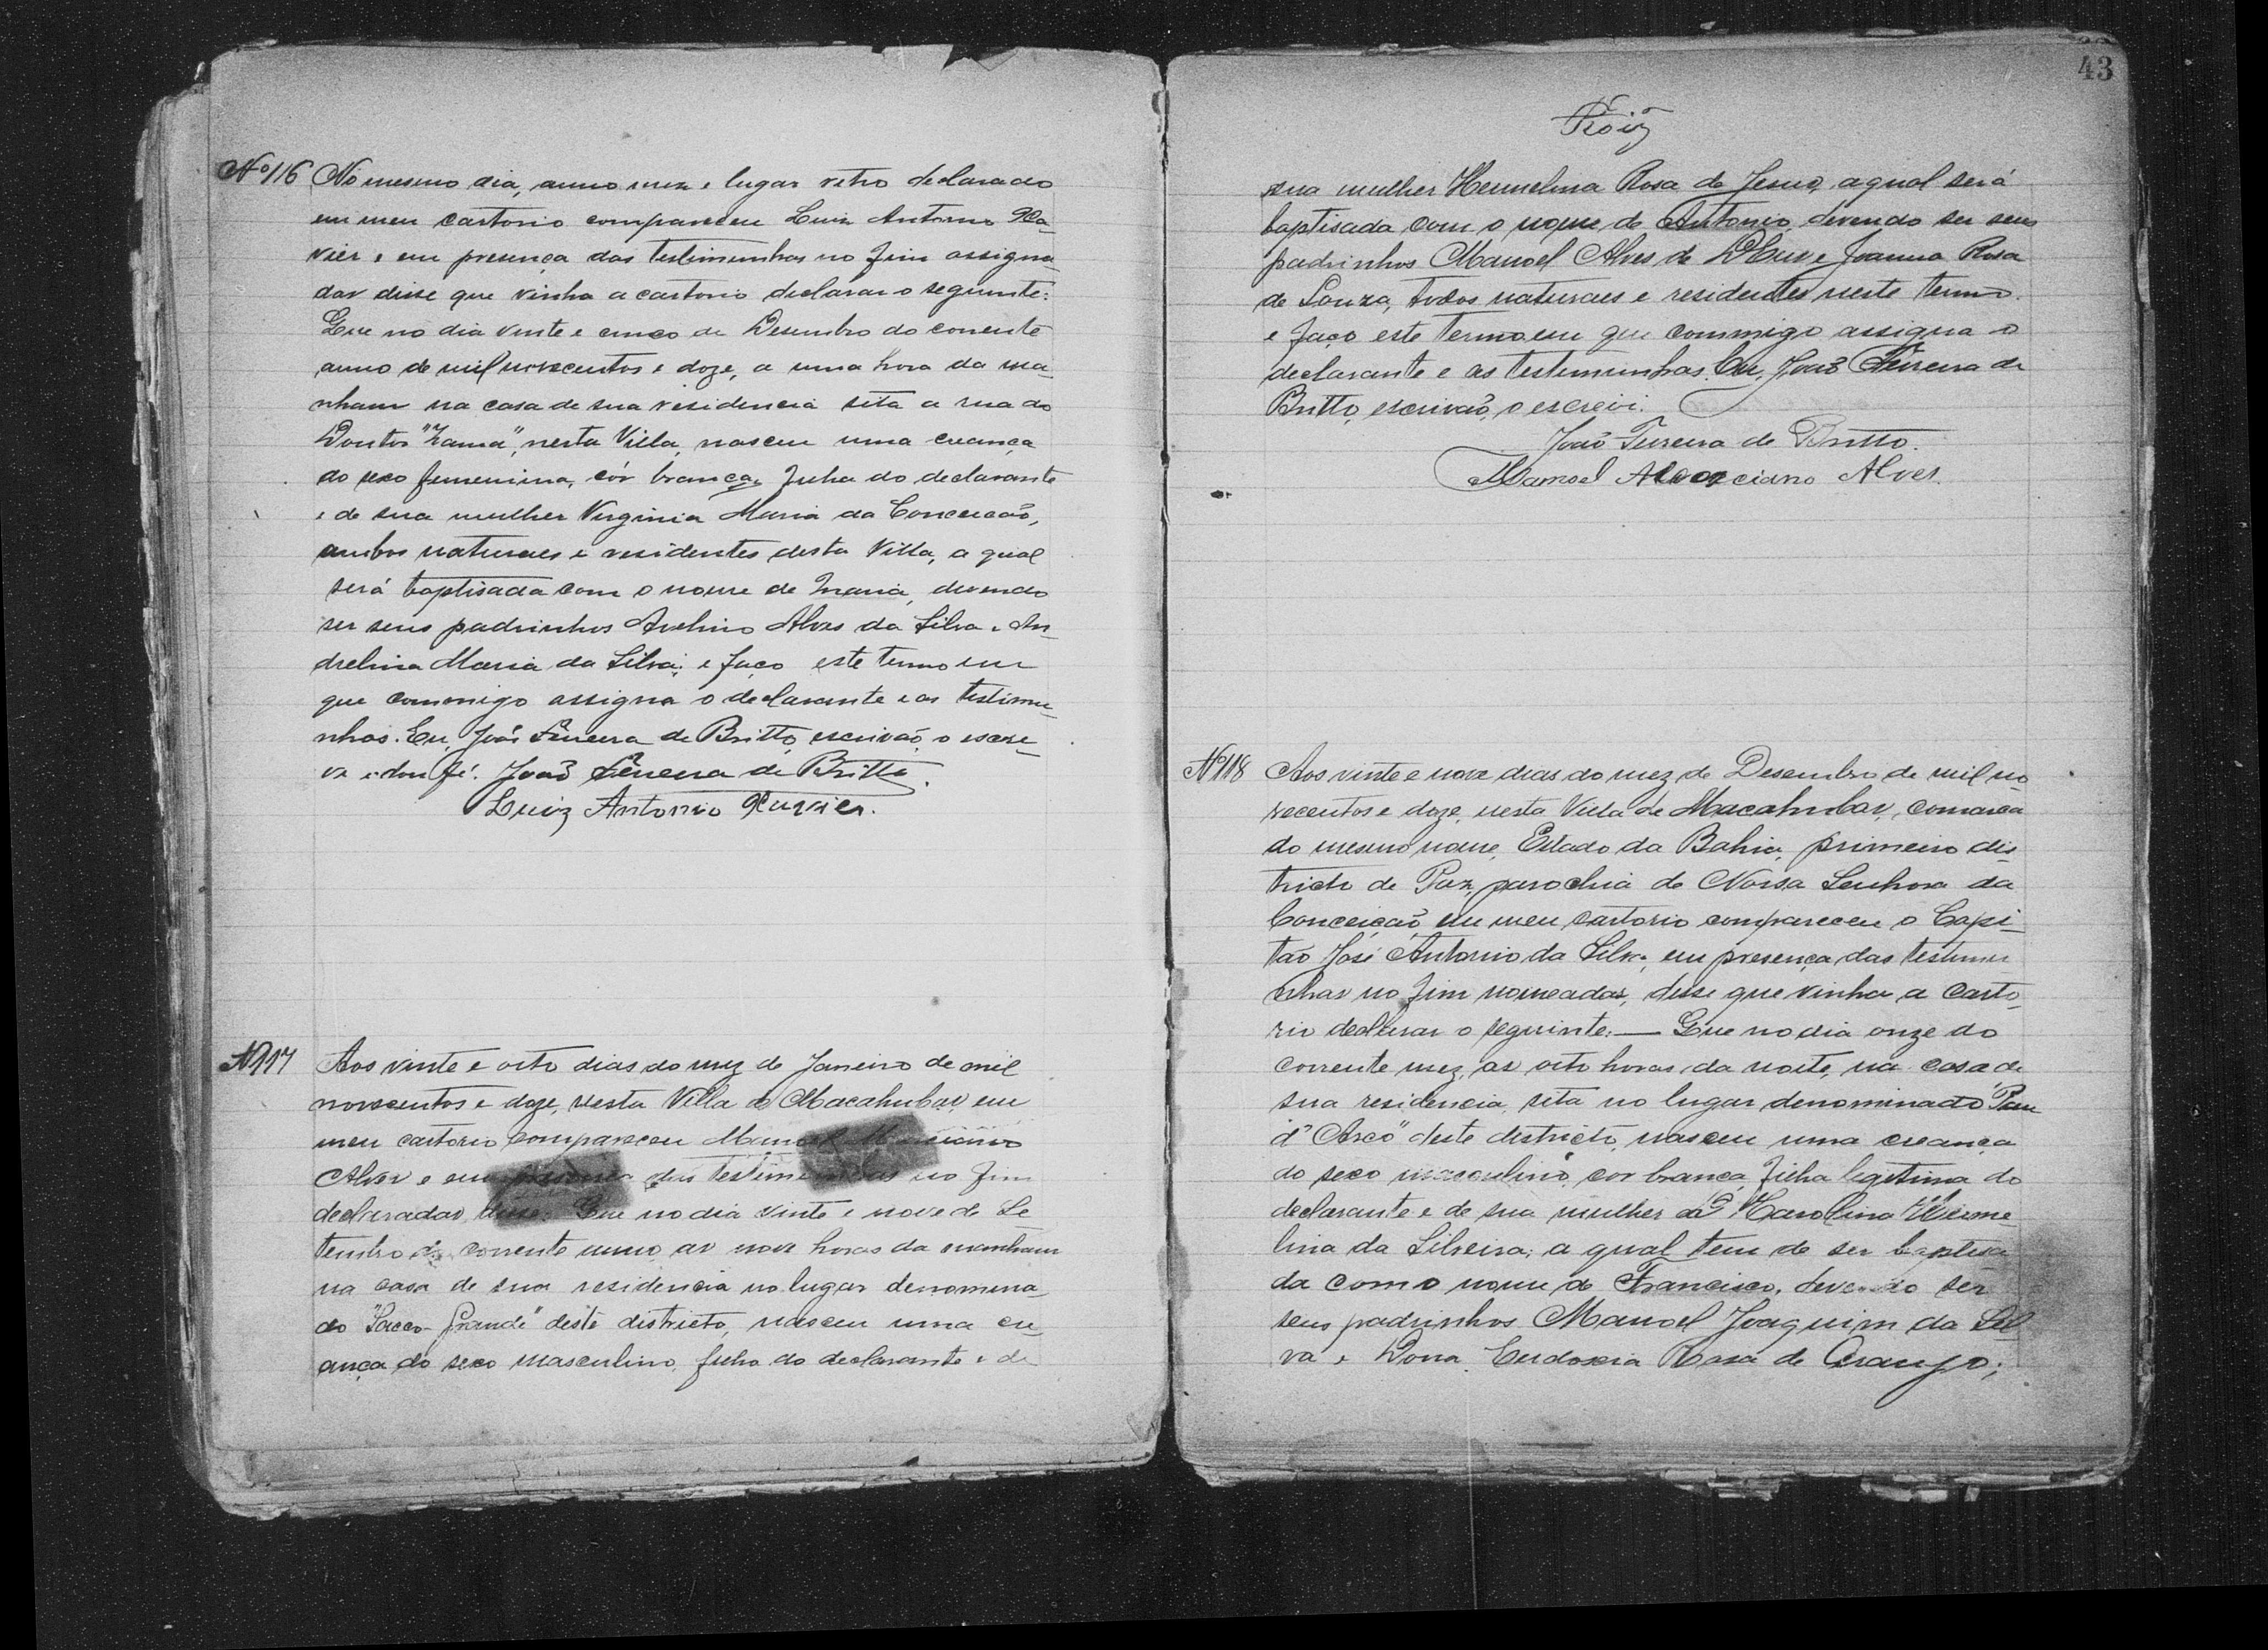 Nº 116 No mesmo dia, anno mez e lugar retro declarado
em meu cartorio compareceu Luiz Antonio Xa-
vier e em presença das testimunhas no fim assigna-
das disse que vinha a cartorio declarar o seguinte:
Que no dia vinte e cinco de Desembro do corrente
anno de mil novecentos e doze, a uma hora da ma-
nham na casa de sua residencia sita a rua do
Doutor "Zama", nesta Villa, nasceu uma creança
do sexo femenina, côr branca, filha do declarante
e de sua mulher Virginia Maria da Conceição,
ambos naturaes e residentes desta Villa, a qual
será baptisada com o nome de Maria, devendo
ser seus padrinhos Avelino Alves da Silva e An-
drelina Maria da Silva; e faço este termo em
que commigo assigna o declarante e as testimu-
nhas. Eu, João Ferreira de Britto, escrivão o escre-
va e dou fé. João Ferreira de Britto.
Luiz Antonio Xavier.
Nº 117 Aos vinte e oito dias do mez de Janeiro de mil
novecentos e doze, nesta Villa de Macahubas, em
meu cartorio compareceu Manoel Marciano
Alves e em presença das testimunhas no fim
declaradas, disse: Que no dia vinte e nove de Se-
tembro do corrente anno, as nove horas da manham
na casa de sua residencia no lugar denomina-
do "Sacco-Grande" deste districto, nasceu uma cre-
ança do sexo masculino, filho do declarante e de
43
sua mulher Hermelina Rosa de Jesus, a qual será
baptisada com o nome de Antonio, devendo ser seus
padrinhos Manoel Alves de Deus e Joanna Rosa
de Souza, todos naturaes e residentes neste termo.
e faço este termo em que commigo assigna o
declarante e as testimunhas. Eu, João Ferreira de
Britto, escrivão, o escrevi.
João Ferreira de Britto.
Manoel Alves.
Nº 118 Aos vinte e nove dias do mez de Desembro de mil no-
vecentos e doze, nesta Villa de Macahubas, comarca
do mesmo nome, Estado da Bahia, primeiro dis-
tricto de Paz, parochia de Nossa Senhora da
Conceição, em meu cartorio compareceu o Capi-
tão José Antonio da Silva, em presença das testimu-
nhas no fim nomeadas, disse que vinha a carto-
rio declarar o seguinte: — Que no dia onze do
corrente mez, as oito horas da noite, na casa de
sua residencia, sita no lugar denominado "Pau
d'Arco" deste districto, nasceu uma creança
do sexo masculino, cor branca, filha legitima do
declarante e de sua mulher Dª Carolina
da Silveira; a qual tem de ser baptisa-
da com o nome de Francisco, devendo ser
seus padrinhos Manoel Joaquim da Sil-
va e Dona Eudoxia Rosa de Araujo;